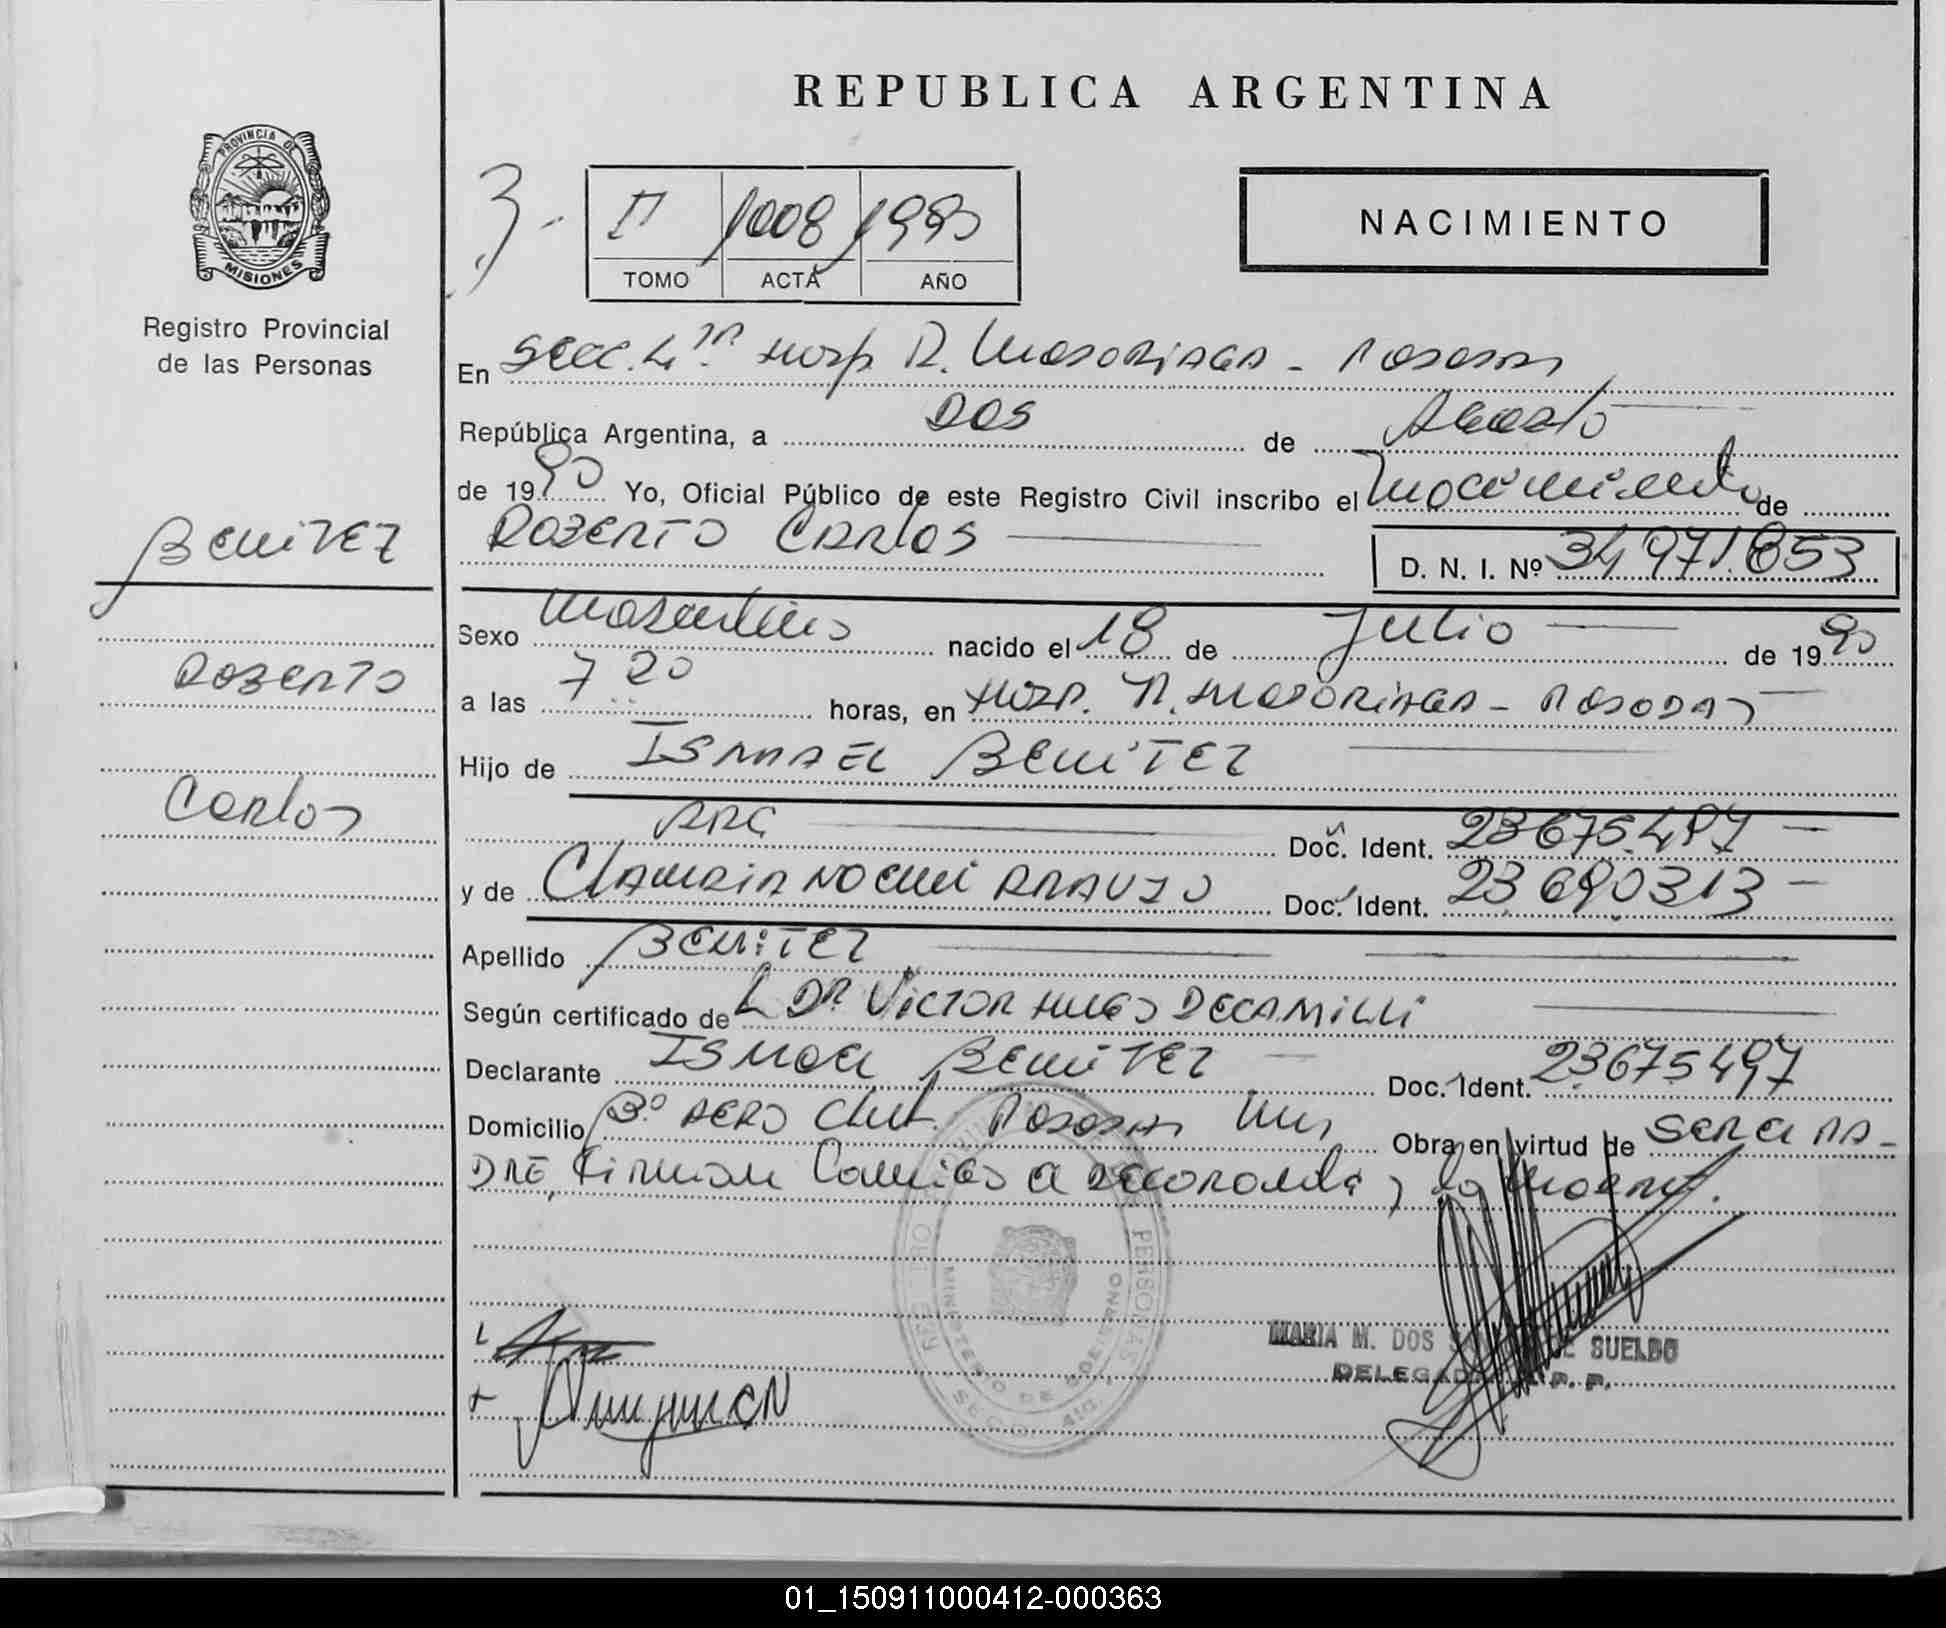 REPUBLICA ARGENTINA
PROVINCIA DE
MISIONES
Registro Provincial
de las Personas
3-
II 1008 1990
TOMO ACTA AÑO
NACIMIENTO
En Secc. 4ta Hosp. R. Madariaga - Posadas
República Argentina, a DOS de Agosto
de 1990 Yo, Oficial Público de este Registro Civil inscribo el Nacimiento de
ROBERTO CARLOS D. N. I. Nº 34971.853
BENITEZ
Roberto
Carlos
Sexo Masculino nacido el 18 de Julio de 1990
a las 7 20 horas, en Hosp. R. Madariaga - Posadas
Hijo de ISMAEL BENITEZ
ARG Doc. Ident. 23675.497
y de CLAUDIA NOEMI ARAUJO Doc. Ident. 23690313
Apellido BENITEZ
Según certificado de L DR VICTOR HUGO DECAMILLI
Declarante ISMAEL BENITEZ Doc. Ident. 23675497
Domicilio Bº AERO Club. Posadas Mnes Obra en virtud de SER EL PA-
DRE, Firman Conmigo el declarante y la madre.
MARIA M. DOS DE SUELDO
DELEGADA P. P.
PERSONAS
MINISTERIO DE GOBIERNO
01_150911000412-000363